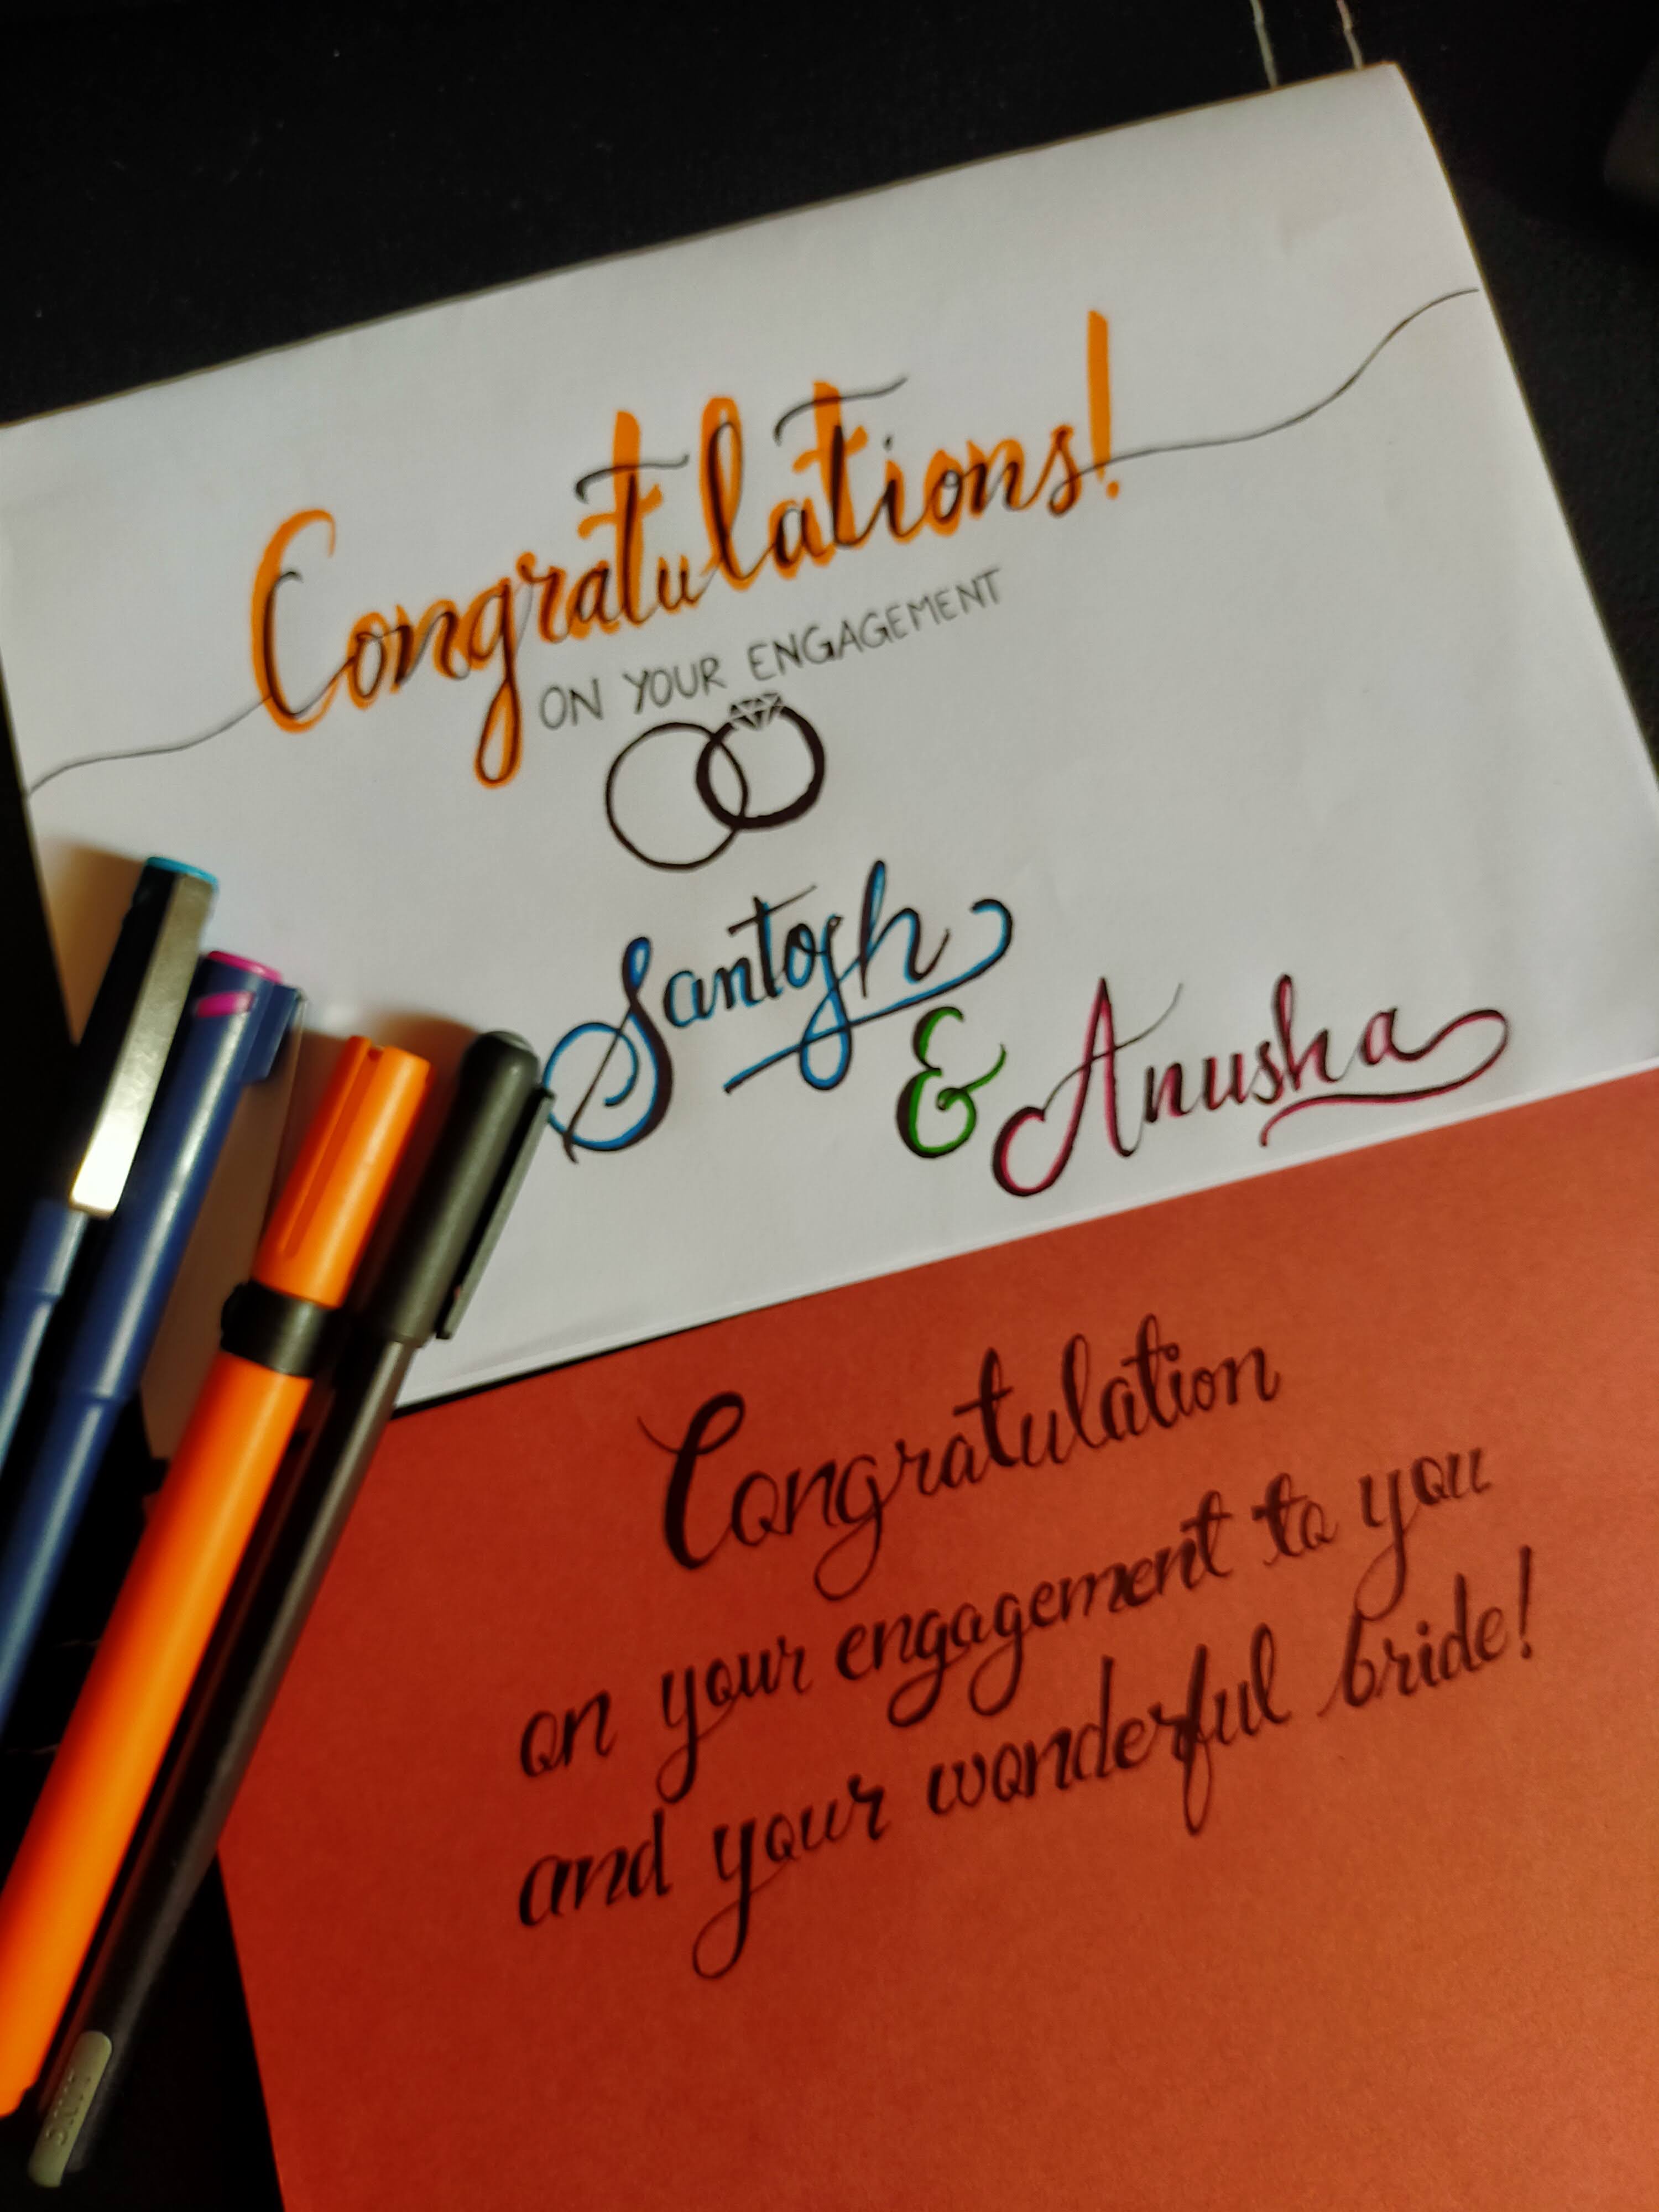 Congratulations!
ON YOUR ENGAGEMENT
Santosh
& Anusha
Congratulation
on your engagement to you
and your wonderful bride!